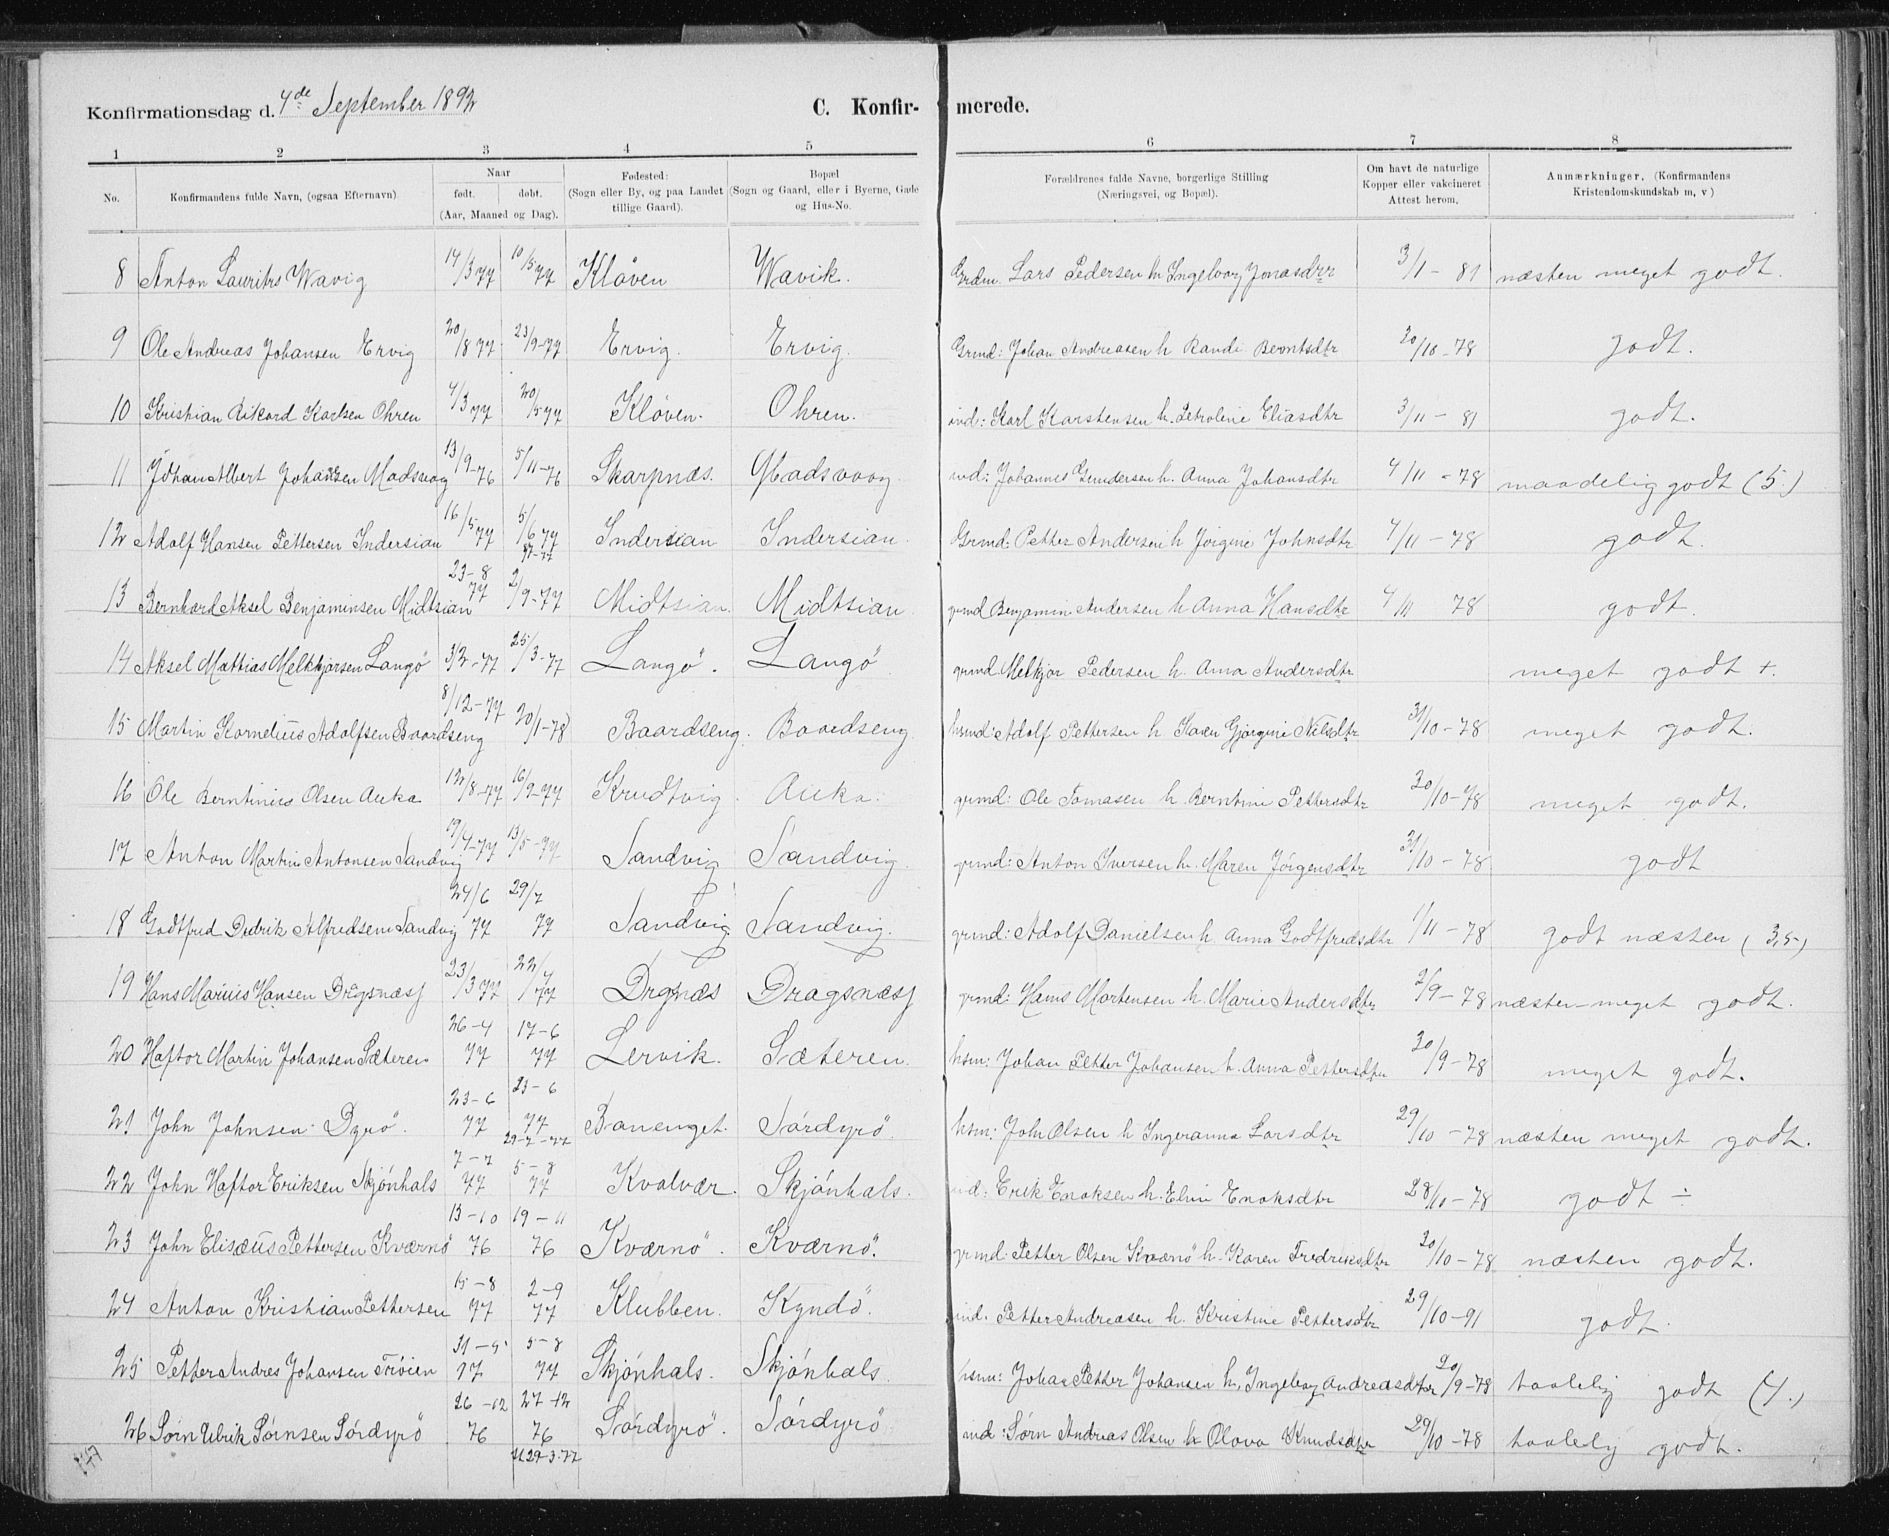 Konfirmationsdag d. 4de September 1892
C. Konfir- merede.
1 2 3 4 5 6 7 8
No.
Konfirmandens fulde Navn, (ogsaa Efternavn)
Naar
født. døbt.
(Aar, Maaned og Dag).
Fødested:
(Sogn eller By, og paa Landet
tillige Gaard).
Bopæl
(Sogn og Gaard, eller i Byerne, Gade
og Hus-No.
Forældrenes fulde Navne, borgerlige Stilling
(Næringsvei, og Bopæl).
Om havt de naturlige
Kopper eller vakcineret
Attest herom.
Anmærkninger, (Konfirmandens
Kristendomskundskab m, v)
8 Anton Lauritrs Wavig 14/3 77 10/5 77 Kløven Wavik. Lars Pedersen h Ingeborg Jonasdtr 3/11 - 81 næsten meget godt.
9 Ole Andreas Johansen Ervig 20/8 77 23/9-77 Ervig. Ervig. Grmd: Johan Andreasen h Randi Berntsdtr 30/10-78 godt.
10 Kristian Rikard Karlsen Ohren 4/3 77 20/5 77 Kløven. Ohren. ind: Karl Karstensen h. Petroline Eliasdtr 3/11 - 81 godt.
11 Johan Albert Johansen Madsvag 13/9-76 5/11-76 Skarpnæs. Madsvaag. ind: Johannes Gundersen h. Anna Johansdtr 4/11 - 78 maadelig godt (5.)
12 Adolf Hansen Pettersen Indersian 16/5 77 5/6 77 Indersian Indersian. Grmd: Petter Andersen h Jørgine Johnsdtr 4/11 - 78 godt.
13 Bernhard Aksel Benjaminsen Midtsian 23-8 77 2/9-77 Midtsian. Midtsian grmd Benjamin Andersen h Anna Hansdtr 4/11 78 godt.
14 Aksel Mattias Melkkjørsen Langö 3/2-77 25/3-77 Langö. Langö grmd. Melkjor Pedersen h. Anna Andersdtr meget godt +.
15 Martin Kornelius Adolfsen Baardseng 8/12-77 20/1-78 Baardseng. Baardseng. husmd: Adolf Pettersen h Karen Gjørgine Nilsdtr 31/10-78 meget godt.
16 Ole Berntinus Olsen Auka 12/8-77 16/9-77 Krudtvig. Auka. grmd: Ole Tomasen h. Berntine Pettersdtr 30/10-78 meget godt.
17 Anton Martin Antonsen Sandvig 19/4-77 13/5-77 Sandvig Sandvig. grmd: Anton Iversen h. Maren Jörgensdtr 31/10-78 godt
18 Godtfred Didrik Alfredsen Sandvig 24/6 77 29/7 77 Sandvig Sandvig. grmd: Adolf Danielsen h. Anna Godtfredsdtr 1/11 - 78 godt næsten (3,5)
19 Hans Marius Hansen Dragsnæs 23/3 77 22/4 77 Drgnæs Dragsnæs grmd: Hans Mortensen h. Marie Andersdtr 2/9 - 78 næsten meget godt.
20 Haftor Martin Johansen Sæteren 26-4 77 17-6 77 Lervik. Sæteren. husm: Johan Petter Johansen h. Anna Pettersdtr 30/9-78 meget godt.
21 John Johnsen Dyrö. 23-6 77 23-6 77 Banenget. Sördyrö. husm: John Olsen h Ingeranna Larsdtr 29/10 - 78 næsten meget godt.
29-7-77
22 John Haftor Eriksen Skjónhals 7-7 77 5-8 77 Kvalvær. Skjónhals. ind: Erik Enoksen h. Elin Enoksdtr 28/10-78 godt ÷
23 John Elisæus Pettersen Kværnö 13-10 76 19-11 76 Kværnö. Kværnö. grmd: Petter Olsen Kværnö h. Karen Fredriksdtr 30/10-78 næsten godt.
24 Anton Kristian Pettersen 15-8 77 2-9 77 Klubben. Kyndö. ind. Petter Andreasen h. Kristine Pettersdtr 29/10-91 godt.
25 Petter Andres Johansen Trøien 31-5 77 5-8 77 Skjónhals. Skjónhals. husm: Johan Petter Johansen h. Ingeborg Andreasdtr 30/9-78 taalelig godt (4.)
26 Sørn Ulrik Sørnsen Sórdyrö 26-12 76 27-12 76 Sórdyrö. Sórdyrö ind: Sørn Andreas Olsen h Olava Knudsdtr 29/10-78 taalelig godt.
29-3-77